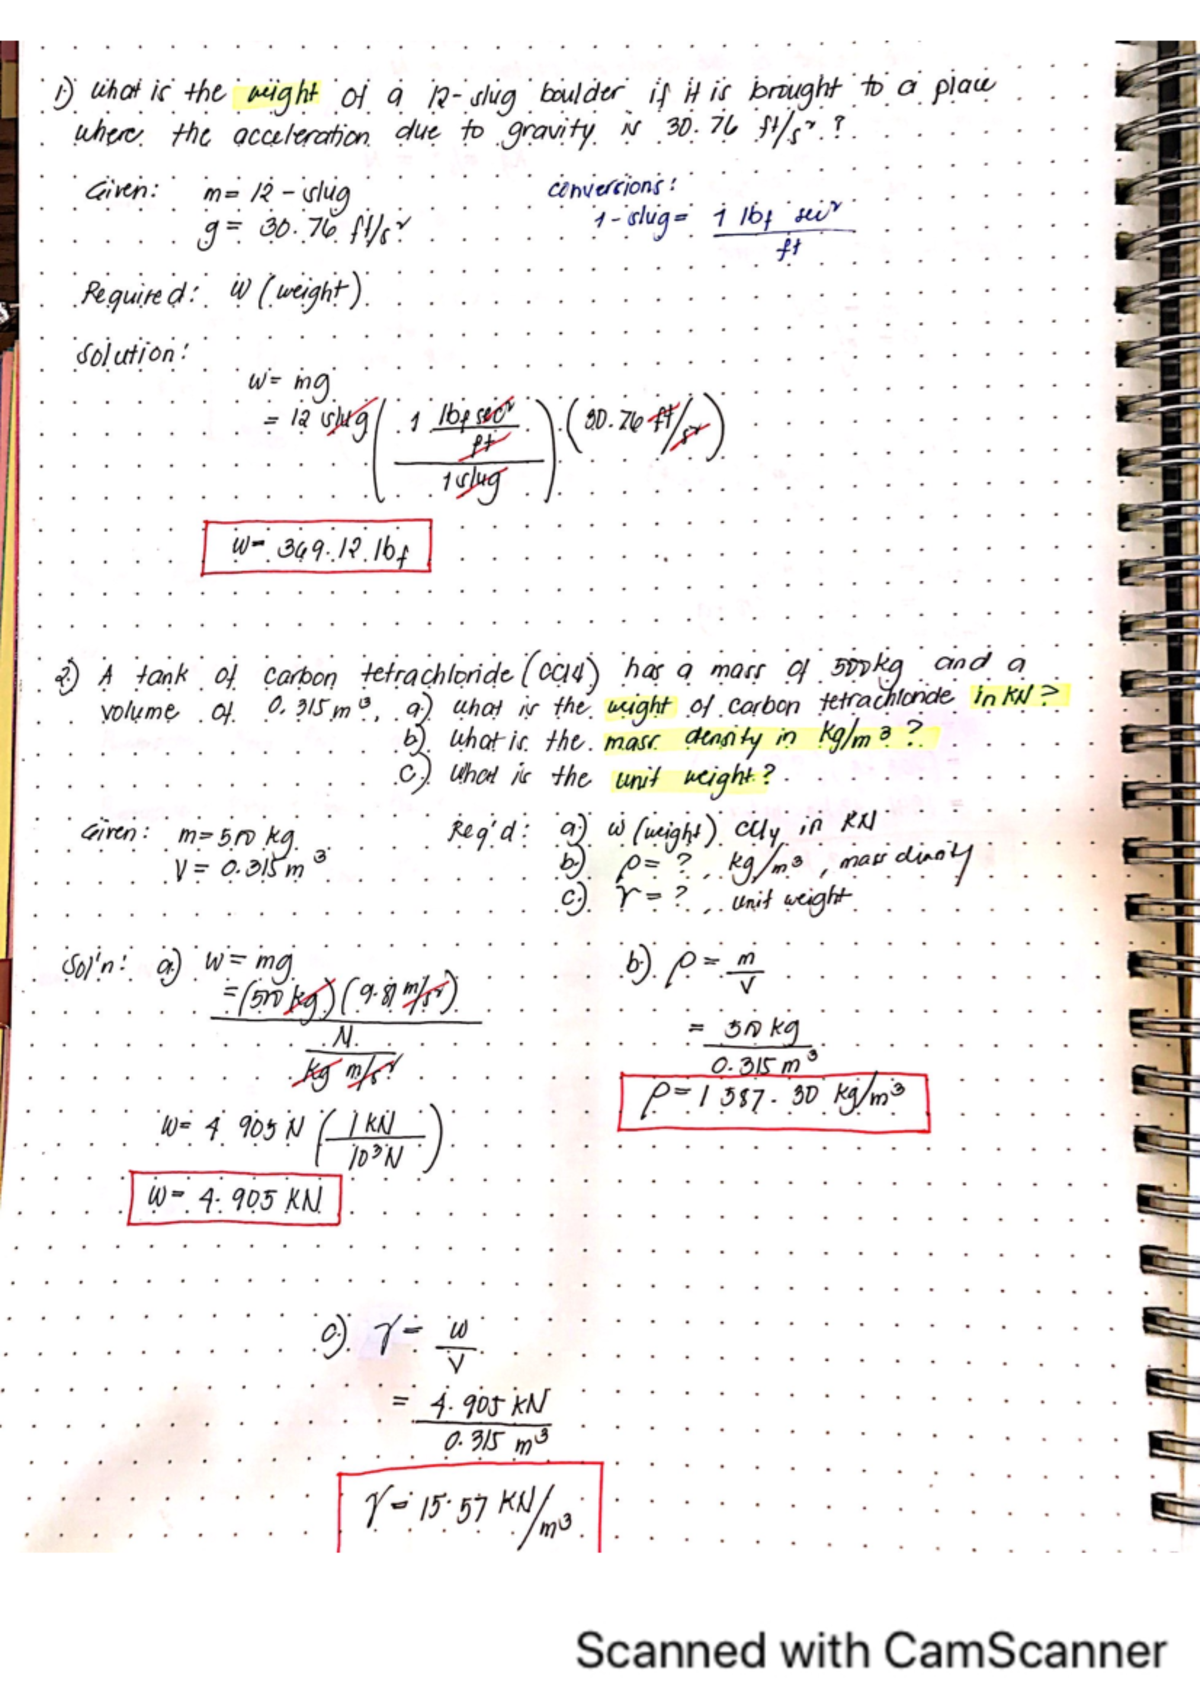 1) What is the weight of a 12-slug boulder if it is brought to a place
where the acceleration due to gravity is 30.76 ft/s² ?
Given: m= 12 - slug
g = 30.76 ft/s²
conversions:
1-slug = 1 lbf sec² / ft
Required: W (weight)
Solution:
W= mg
= 12 slug ( 1 lbf sec² / ft / 1 slug ) (30.76 ft/s²)
W= 369.12 lbf
2) A tank of carbon tetrachloride (CCl4) has a mass of 500kg and a
volume of 0.315 m³. a) what is the weight of carbon tetrachloride in KN?
b) What is the mass density in kg/m³ ?
c) What is the unit weight?
Given: m= 500 kg
V = 0.315 m³
Req'd: a) W (weight) CCl4 in KN
b) ρ = ? kg/m³, mass density
c) γ = ? unit weight
Sol'n: a) W= mg
= (500 kg) (9.81 m/s²)
N
kg m/s²
W= 4 905 N ( 1 KN / 10³N )
W= 4.905 KN
b) ρ = m / V
= 500 kg
0.315 m³
ρ = 1 587.30 kg/m³
c) γ = W / V
= 4.905 KN
0.315 m³
γ = 15.57 KN/m³
Scanned with CamScanner